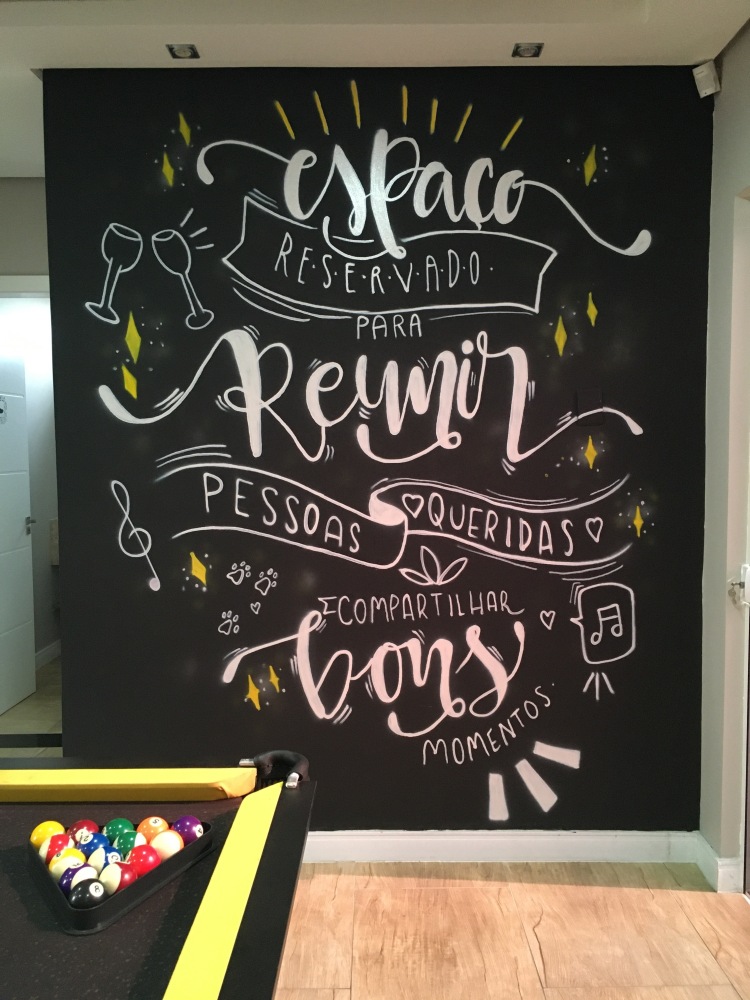 espaço
R·E·S·E·R·V·A·D·O·
PARA
Reunir
PESSOAS ♡QUERIDAS♡
E COMPARTILHAR
bons
MOMENTOS.